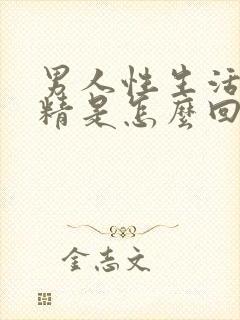 男人性生活
精是怎麼回
金志文